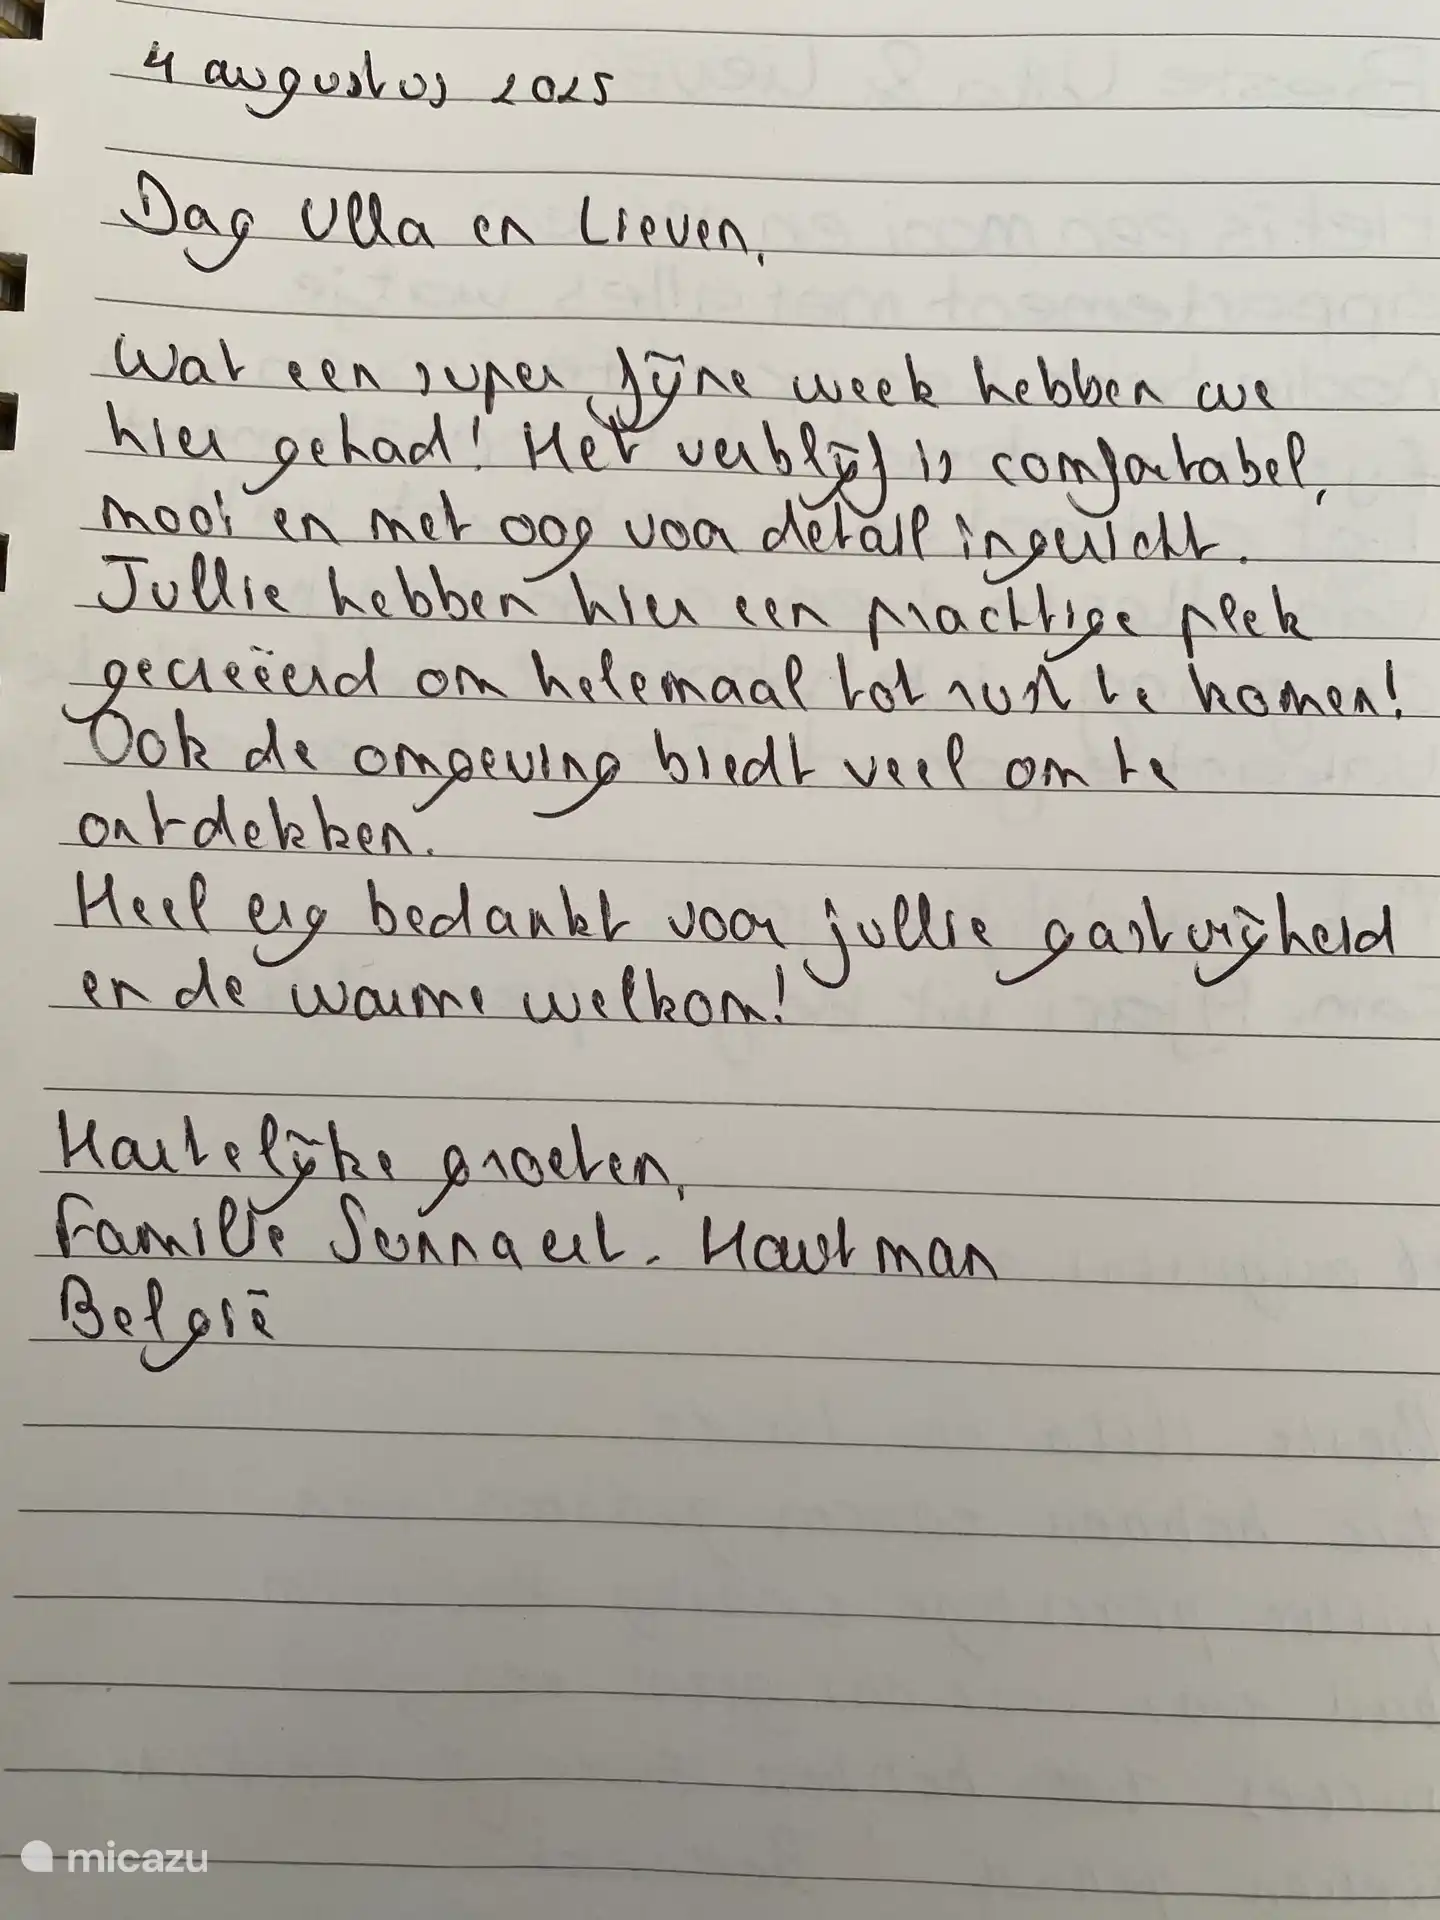 4 augustus 2025
Dag Ulla en Lieven,
Wat een super fijne week hebben we
hier gehad! Het verblijf is comfortabel,
mooi en met oog voor detail ingericht.
Jullie hebben hier een prachtige plek
gecreëerd om helemaal tot rust te komen!
Ook de omgeving biedt veel om te
ontdekken.
Heel erg bedankt voor jullie gastvrijheid
en de warme welkom!
Hartelijke groeten,
Familie - Houtman
België
micazu